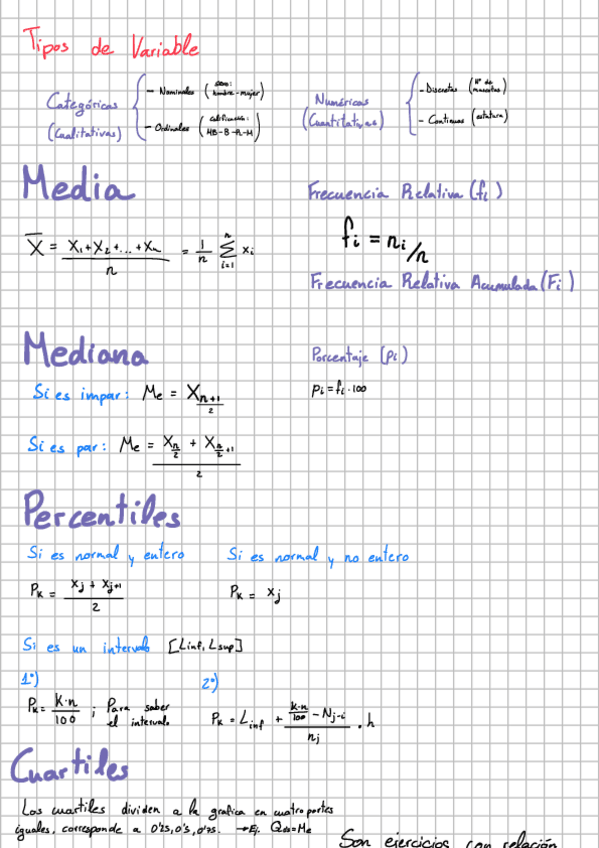 Tipos de Variable
Categóricas
(Cualitativas)
- Nominales (sexo: hombre-mujer)
- Ordinales (calificación: MB-B-R-M)
Numéricas
(Cuantitativas)
- Discretas (Nº de mascotas)
- Continuas (estatura)
Media
X̄ = (X₁+X₂+...+Xₙ)/n = 1/n Σ_{i=1}^{n} xᵢ
Frecuencia Relativa (fi)
fi = ni/n
Frecuencia Relativa Acumulada (Fi)
Mediana
Si es impar: Me = X_{(n+1)/2}
Si es par: Me = (X_{n/2} + X_{n/2+1})/2
Porcentaje (pi)
pi = fi · 100
Percentiles
Si es normal y entero
P_K = (xj + xj+1)/2
Si es normal y no entero
P_K = xj
Si es un intervalo [Linf, Lsup]
1º)
P_K = K·n/100 ; Para saber
el intervalo
2º)
P_K = L_inf + (K·n/100 - N_{j-i})/nj · h
Cuartiles
Los cuartiles dividen a la grafica en cuatro partes
iguales, corresponde a 0'25, 0'5, 0'75. → Ej.
Son ejercicios con relación